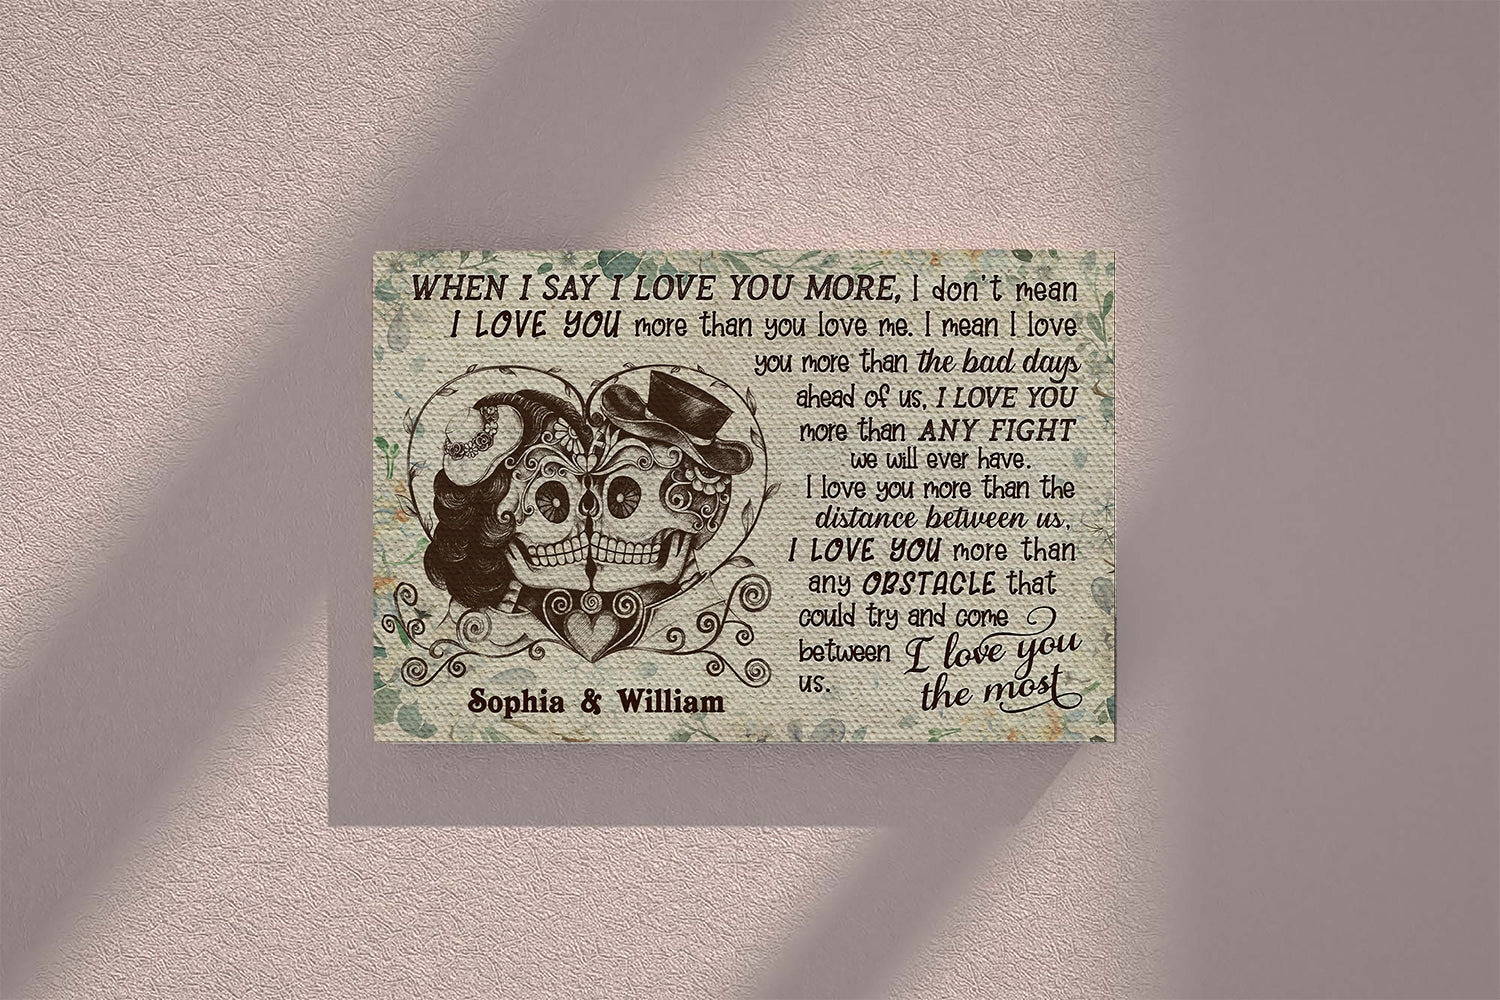 WHEN I SAY I LOVE YOU MORE, I don't mean
I LOVE YOU more than you love me. I mean I love
you more than the bad days
ahead of us, I LOVE YOU
more than ANY FIGHT
we will ever have.
I love you more than the
distance between us,
I LOVE YOU more than
any OBSTACLE that
could try and come
between I love you
us. the most
Sophia & William